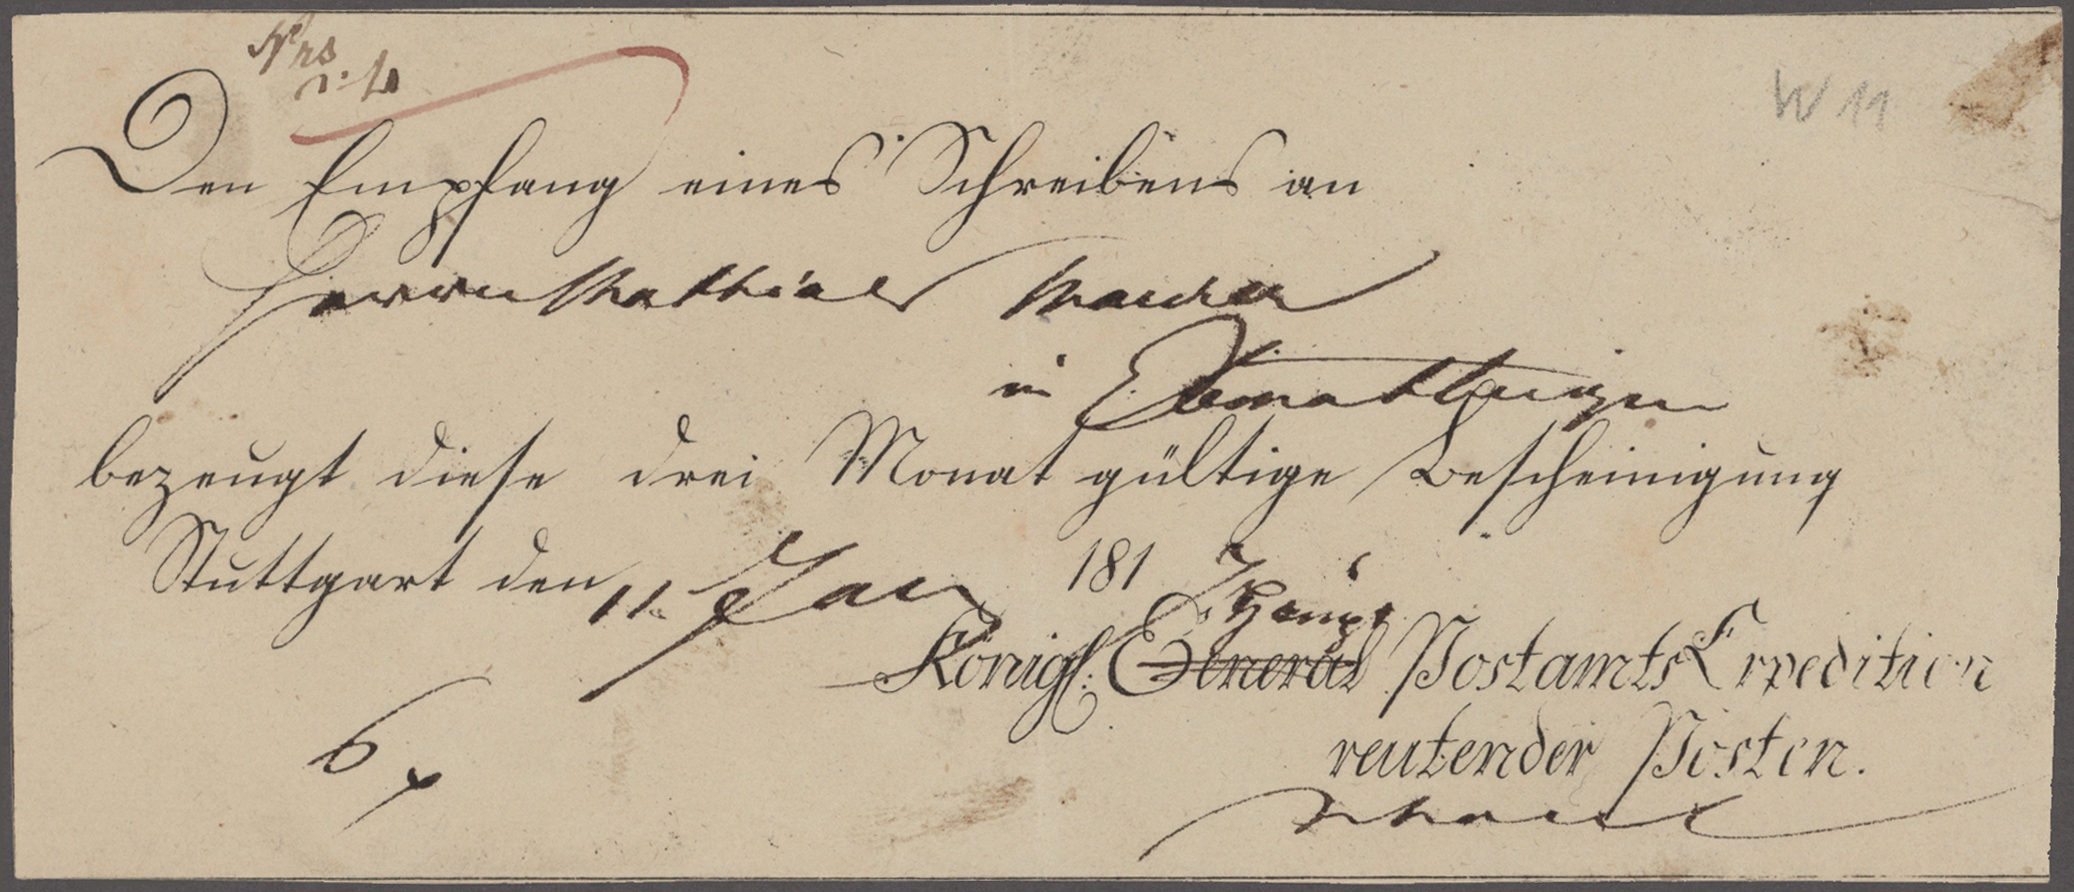 W 11
Den Empfang eines Schreibens an
Herrn Mathias Maurer
in
bezeugt diese drei Monat gültige Bescheinigung
Stuttgart den 11. Jan 181
Haupt
Königl: General Postamts Expedition
reutender Posten.
6 x